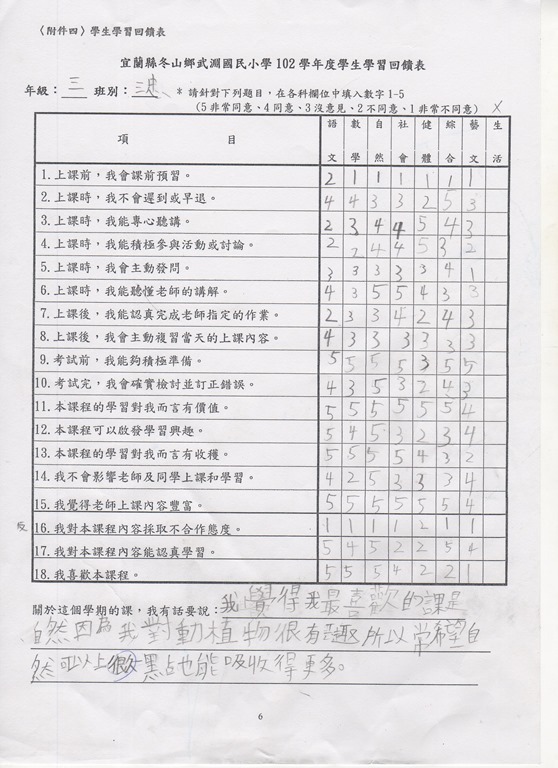 〈附件四〉學生學習回饋表
宜蘭縣冬山鄉武淵國民小學 102 學年度學生學習回饋表
年級：三 班別：三忠 * 請針對下列題目，在各科欄位中填入數字 1-5
(5 非常同意、4 同意、3 沒意見、2 不同意、1 非常不同意) X
項 目 語文 數學 自然 社會 健體 綜合 藝文 生活
1.上課前，我會課前預習。 2 1 1 1 1 1 1
2.上課時，我不會遲到或早退。 4 4 3 3 2 5 3
3.上課時，我能專心聽講。 2 3 4 4 5 4 3
4.上課時，我能積極參與活動或討論。 2 2 4 4 5 3 2
5.上課時，我會主動發問。 3 3 3 3 3 4 1
6.上課時，我能聽懂老師的講解。 4 3 5 5 4 3 3
7.上課後，我能認真完成老師指定的作業。 2 3 3 4 2 4 3
8.上課後，我會主動複習當天的上課內容。 4 3 3 3 3 3 3
9.考試前，我能夠積極準備。 5 5 5 5 3 5 5
10.考試完，我會確實檢討並訂正錯誤。 4 3 5 3 2 4 3
11.本課程的學習對我而言有價值。 5 5 5 5 5 5 4
12.本課程可以啟發學習興趣。 5 4 5 3 2 3 4
13.本課程的學習對我而言有收獲。 5 5 5 5 4 3 2
14.我不會影響老師及同學上課和學習。 4 2 5 3 3 3 4
15.我覺得老師上課內容豐富。 5 5 5 5 5 5 4
反 16.我對本課程內容採取不合作態度。 1 1 1 1 2 1 1
17.我對本課程內容能認真學習。 5 4 5 2 2 5 4
18.我喜歡本課程。 5 5 5 4 2 2 1
關於這個學期的課，我有話要說：我覺得我最喜歡的課是
自然因為我對動植物很有趣所以常希望自
然可以上很久點也能吸收得更多。
6